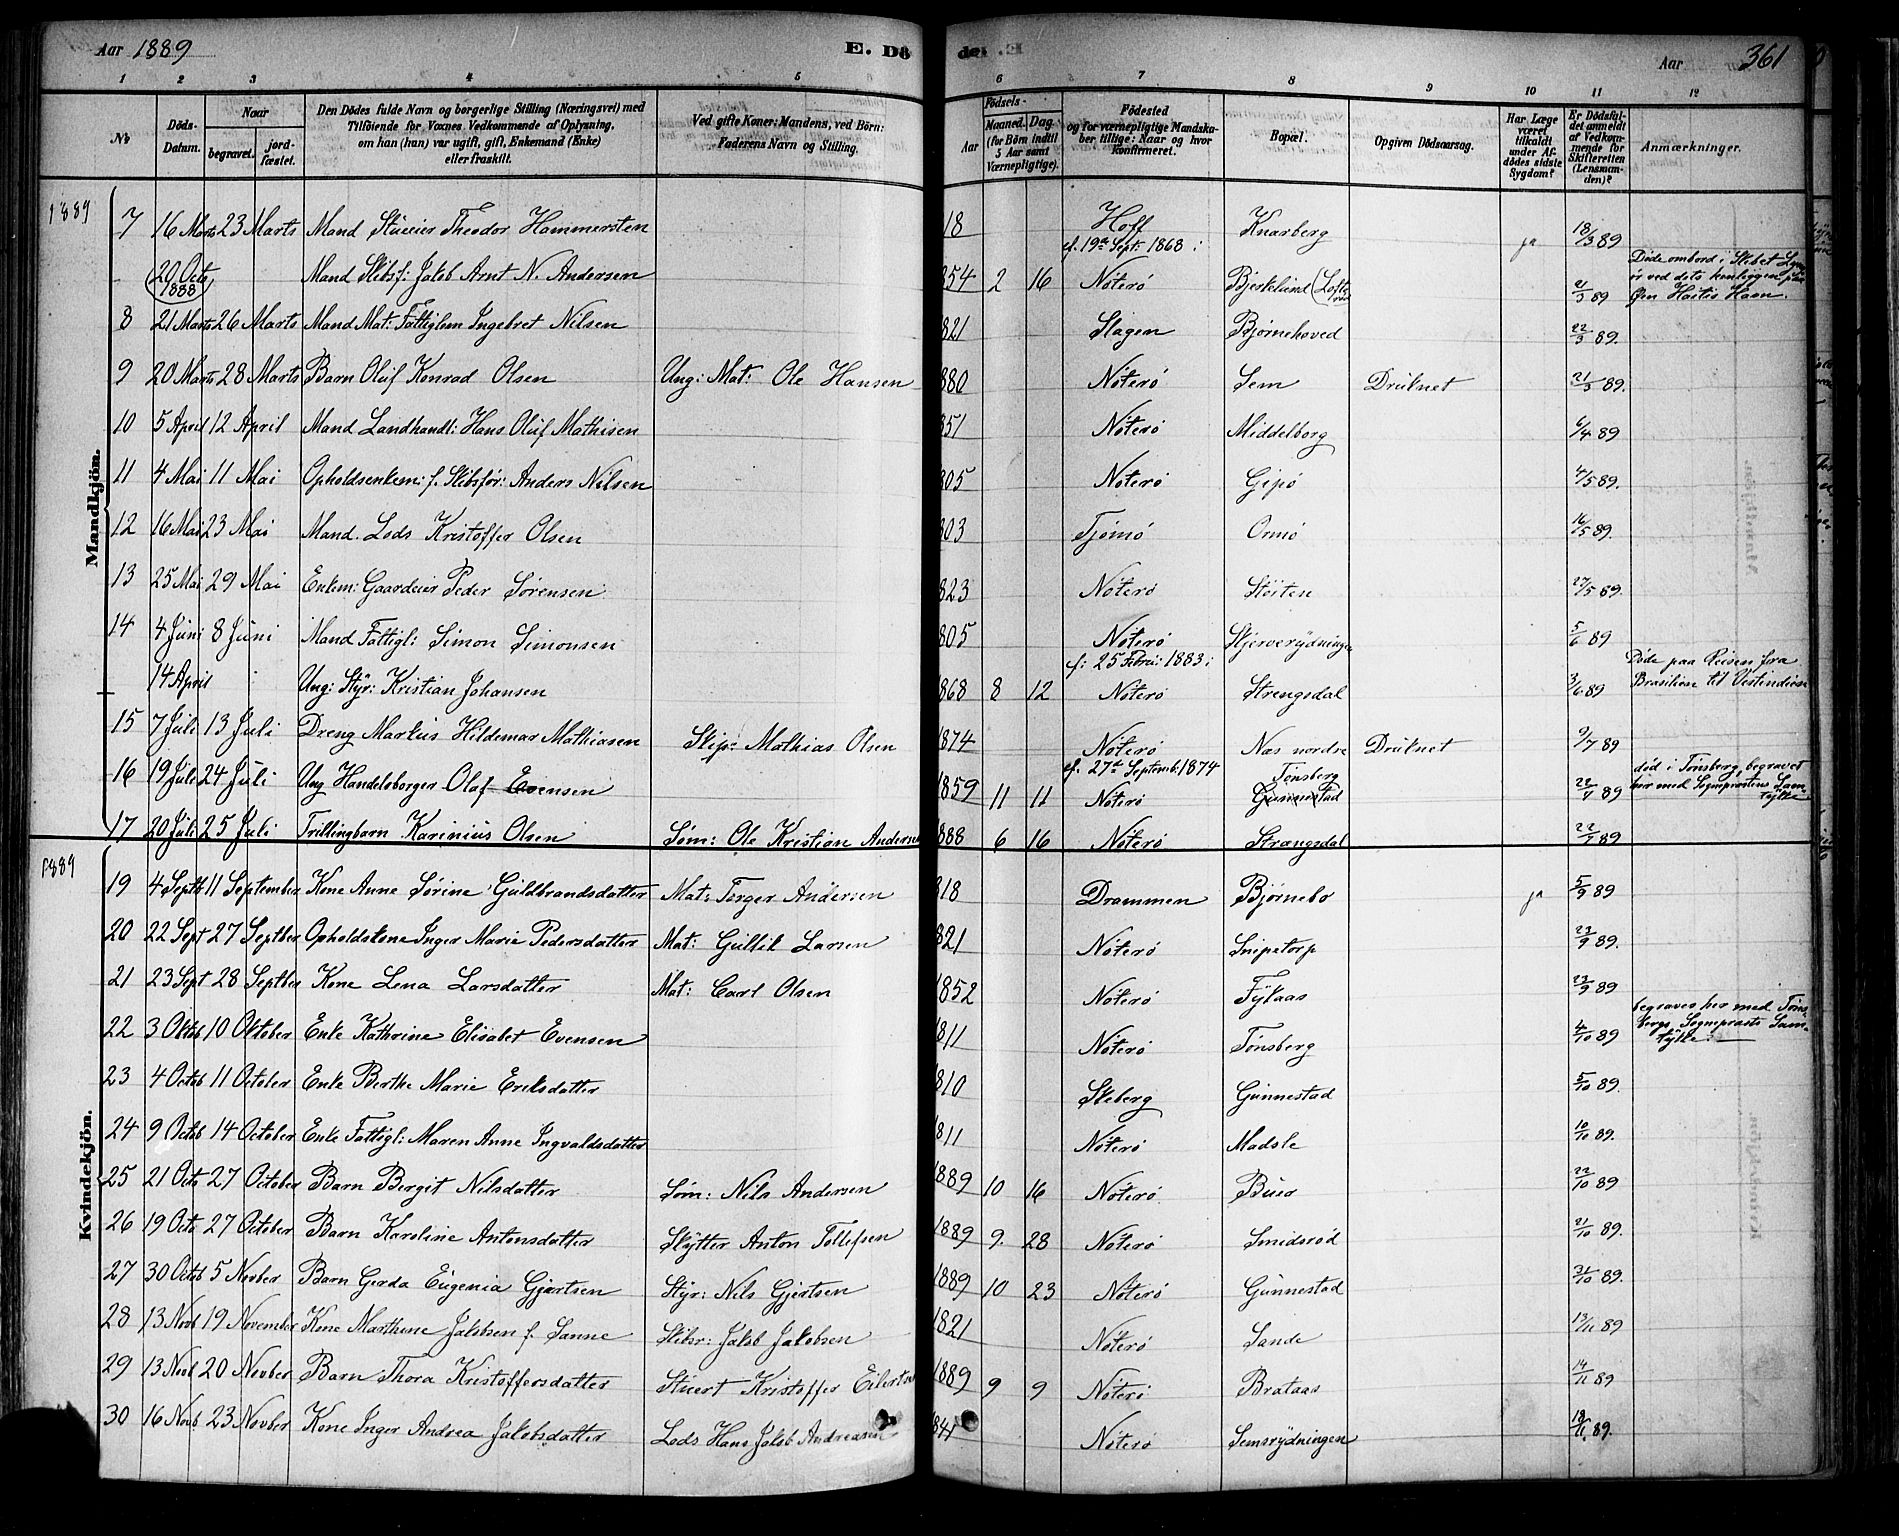 Aar 1889 E. Dö
361 Aar
1 2 3 4 5 6 7 8 9 10 11 12
№ Döds-Datum. Naar begravet. jord-fæstet. Den Dödes fulde Navn og borgerlige Stilling (Næringsvei) med Tilföiende for Voxnes Vedkommende af Oplysning. om han (hun) var ugift, gift, Enkemand (Enke) eller fraskilt. Ved gifte Koner: Mandens, ved Börn: Faderens Navn og Stilling.
Aar Födsels- Maaned. Dag. (for Börn indtil 5 Aar samt Værnepligtige). Födested og for værnepligtige Mandskaber tillige: Naar og hvor konfirmeret. Bopæl. Opgiven Dödsaarsag. Har Læge været tilkaldt under Afdödes sidste Sygdom? Er Dödsfaldet anmeldt af Vedkommende for Skifteretten (Lensmanden)? Anmærkninger.
1889
Mandkjön.
7 16 Marts 23 Marts Mand Stueier Theodor Hammersten 18 Hoff Knarberg ja 18/3 89
20 Octo 1888 Mand Skibsf: Jakob Arnt N. Andersen 854 2 16 cf. 19de Sept: 1868: Nöterö Bjerkelund 21/3 89 Döde ombord i Skibet ved dets
8 21 Marts 26 Marts Mand Mat: Fattiglem Ingebret Nilsen 821 Slagen Bjørnehoved 22/3 89.
9 20 Marts 28 Marts Barn Oluf Konrad Olsen Ung: Mat: Ole Hansen 880 Nöterö Sem Druknet 21/3 89.
10 5 April 12 April Mand Landhandl: Hans Oluf Mathisen 851 Nöterö Middelborg 6/4 89
11 4 Mai 11 Mai Opholdsenkem: f. Skibsför: Anders Nilsen 805 Nöterö Gipö 4/5 89.
12 16 Mai 23 Mai Mand. Lods Kristoffer Olsen 803 Tjömö Ormö 16/5 89.
13 25 Mai 29 Mai Enkem: Gaardeier Peder Sørensen 823 Nöterö Stöiten 27/5 89.
14 4 Juni 8 Juni Mand Fattigl: Simon Simonsen 805 Nöterö Skjerverydningen 5/6 89
14 April Ung: Styr: Kristian Johansen 868 8 12 cf: 25 Febru: 1883: Nöterö Strengsdal 3/6 89 Döde paa Reisen fra Brasilien til Vestindien
15 7 Juli 13 Juli Dreng Marius Hildemar Mathiasen Skip: Mathias Olsen 1874 Nöterö Næs nordre Druknet 9/7 89
16 19 Juli 24 Juli Ung Handelsborger Olaf Evensen 1859 11 11 cf. 27de Septemb: 1874 Nöterö Tønsberg Gunnestad 22/7 89 död i Tønsberg, begravet her med Sogneprestens Samtykke
17 20 Juli 25 Juli Trillingbarn Karinius Olsen Søm: Ole Kristian Andersen 888 6 16 Nöterö Strængsdal 22/7 89
1889
Kvindekjön.
19 4 Septb 11 September Kone Anne Sørine Guldbrandsdatter Mat: Torger Andersen 818 Drammen Bjørnebo ja 5/9 89
20 22 Sept 27 Septber Opholdskone Inger Marie Pedersdatter Mat: Gullik Larsen 821 Nöterö Snipetorp 23/9 89.
21 23 Sept 28 Septber Kone Lena Larsdatter Mat: Carl Olsen 1852 Nöterö Fylaas 23/9 89
22 3 Oktob 10 Oktober Enke Kathrine Elisabet Evensen 1811 Nöterö Tønsberg 4/10 89 begraves her med Tønsbergs Sogneprests Samtykke.
23 4 Octob 11 October Enke Berthe Marie Eriksdatter 810 Skeberg Gunnestad 5/10 89.
24 9 Octob 14 October Enke Fattigl: Maren Anne Ingvaldsdatter 1811 Nöterö Madsle 10/10 89.
25 21 Octo 27 October Barn Bergit Nilsdatter Søm: Nils Andersen 1889 10 16 Nöterö Buer 22/10 89
26 19 Octo 27 October Barn Karoline Antonsdatter Skytter Anton Tollefsen 1889 9. 28 Nöterö Smidsrød 21/10 89.
27 30 Octob 5 Novber Barn Gerda Eugenia Gjertsen Styr: Nils Gjertsen 1889 10 23 Nöterö Gunnestad 31/10 89.
28 13 Novb 19 November Kone Marthine Jakobsen f. Sanne Skibsr: Jakob Jakobsen 1821 Nöterö Sande 13/11 89
29 13 Novb 20 Novber Barn Thora Kristoffersdatter Stuert Kristoffer Eilertsen 1889 9 9 Nöterö Brataas 14/11 89
30 16 Novb. 23 Novber Kone Inger Andrea Jakobsdatter Lods Hans Jakob Andreasen 841 Nöterö Semsrydningen 18/11 89.